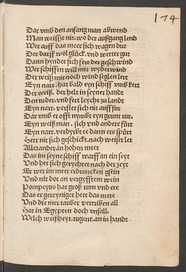 174
Dar vmb den anfang man abwend
Man weißt nit, wo der außgang lend
Wer auff das meer sich wagen dut
Der darff wol glück, vnd wetter gut
Dann hynder sich fert der geschwind
Wer schiffen will mit wyder wind
Der weiß mit noch wind seglen lert
Eyn narr, bald eyn schiff vmb kert
Der weiß, der helt in seyner handt
Den ruder, vnd fert lycht zu landt
Eyn narr, verstet sich nit auff
Dar vmb er offt nymbt eyn grunt rur
Eyn weiß man, sich vnd ander fürt
Eyn narr, verdyrbt ee dann ers spürt
Hett nit sich geschickt, nach weiser ler
Alexander, in hohem meer
Das im seyn schiff warff an ein seyt
Vnd het sich gerychtet nach der zeyt
Er wer im meer ertruncken gsin
Vnd nit dot an vergyfftem wein
Pompeyus hat groß rum vnd eer
Das er gereyniget het das meer
Vnd die mer rauber vertriben all
Hat in Egypten doch vnfall.
Welch weißheyt, tugent, an in handt